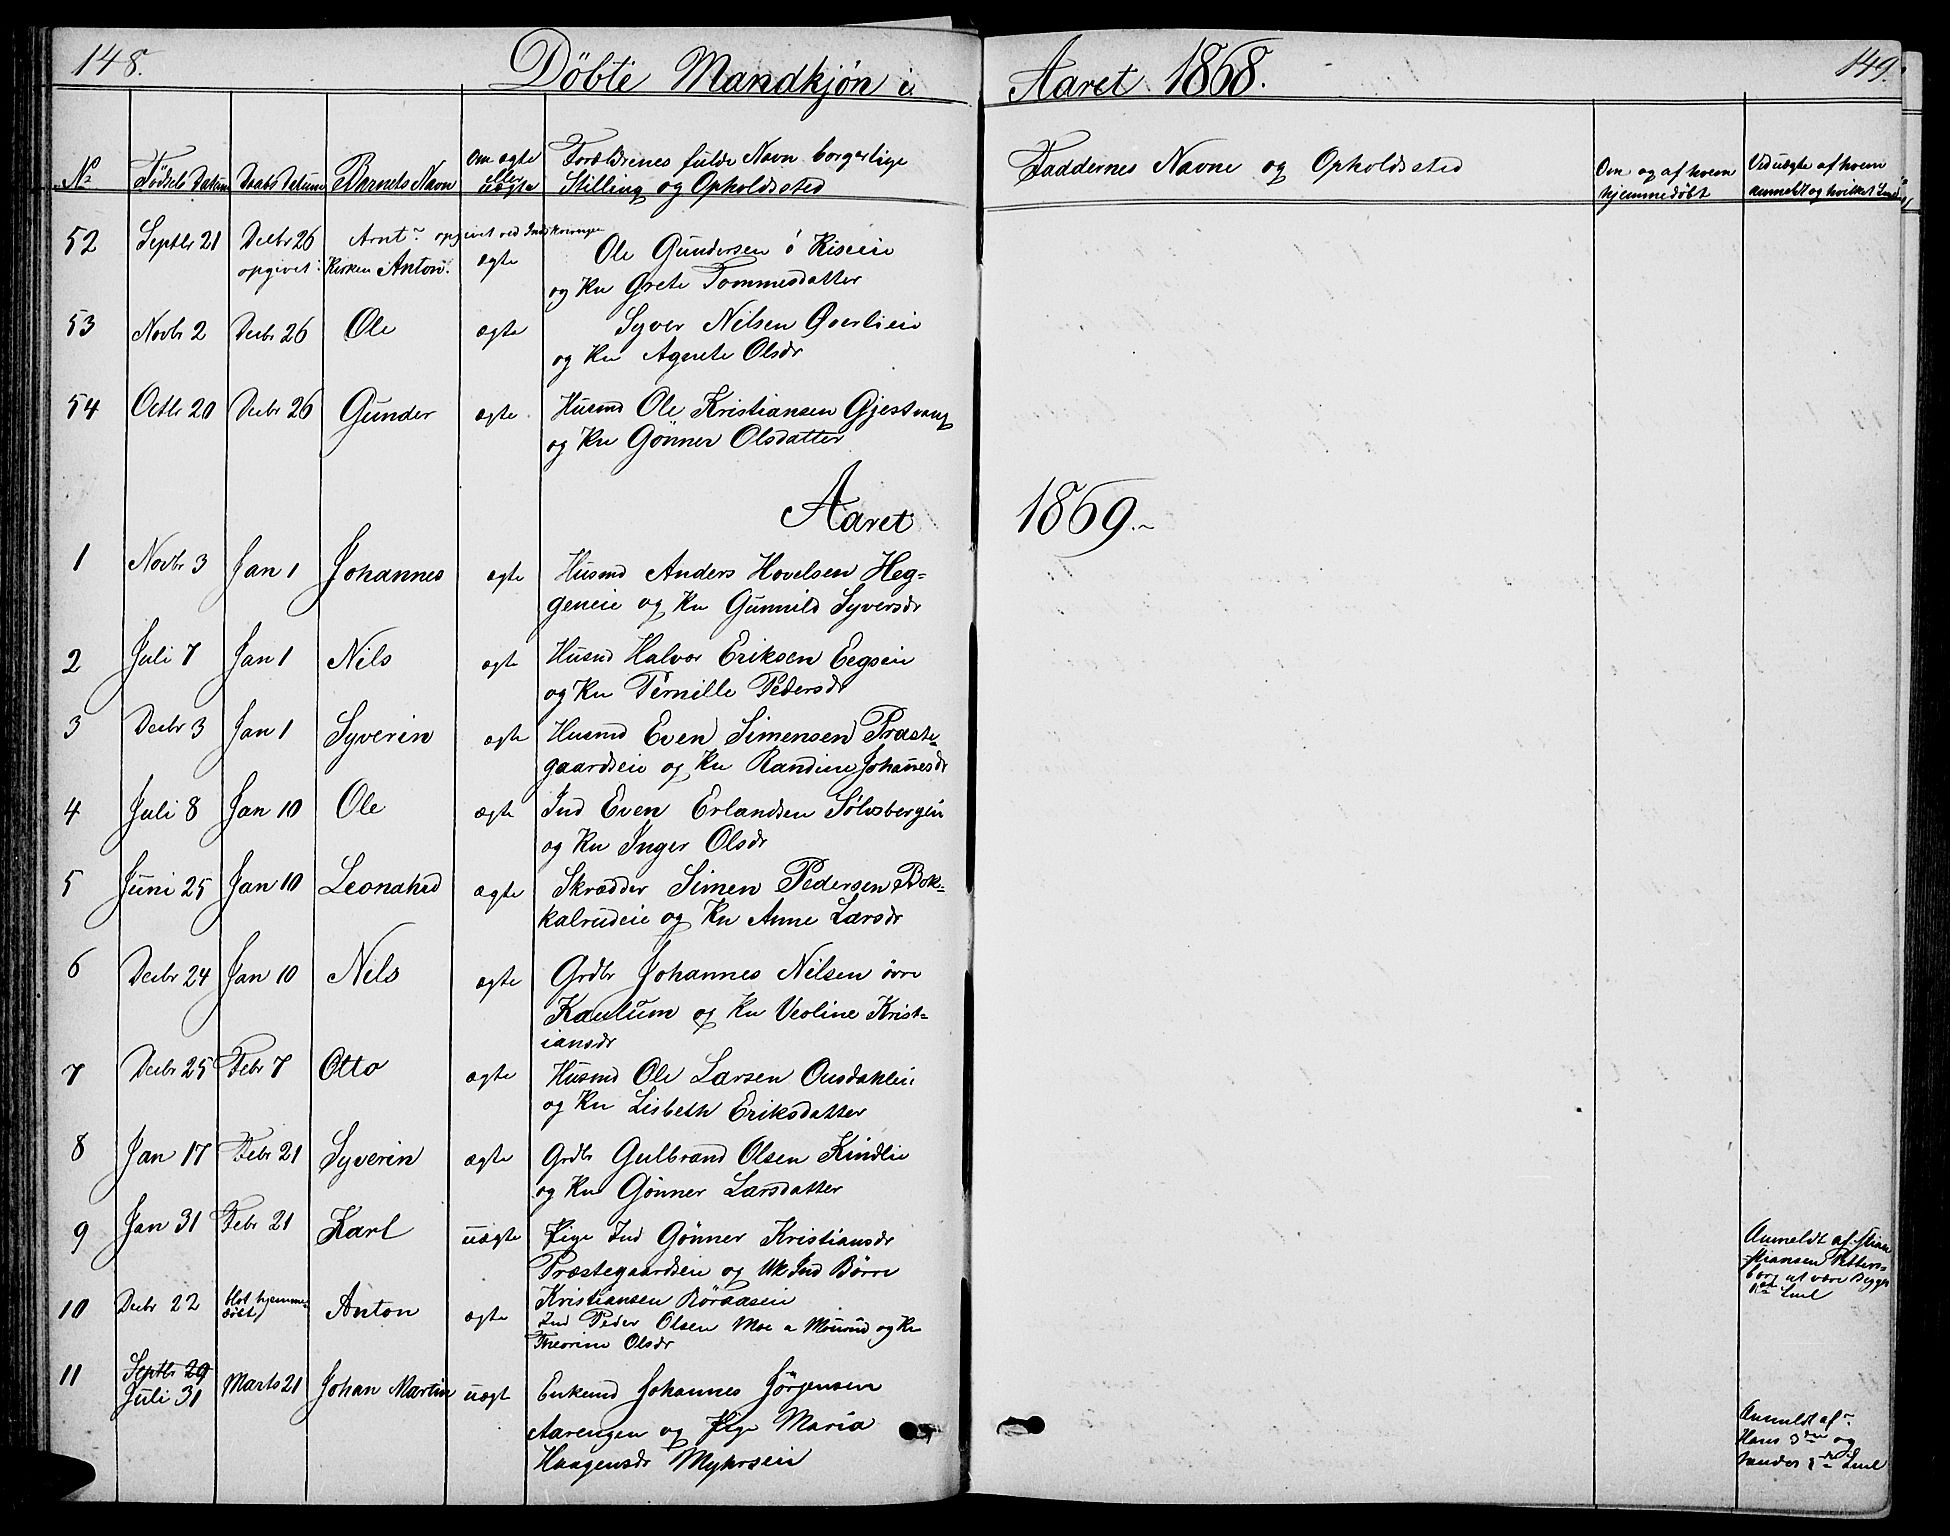 148.
Döbte Mandkjøn i
Aaret 1868.
149.
No
Fødsels Datum
Daabs Datum
Barnets Navn
Om ægte
eller
uægte
Forældrenes fulde Navn borgerlige
Stilling og Opholdssted
Faddernes Navne og Opholdssted
Om og af hvem
hjemmedøbt
Ved uægte af hvem
anmeldt og hvilket
52 Septbr 21 Decbr 26 Arnt opgivet ved
opgivet Kirken Anton. ægte
Ole Gundersen Riseeie
og Ku Grete Tommesdatter
53 Novbr 2 Decbr 26 Ole ægte Syver Nilsen Overlieie
og Ku Agnete Olsdr
54 Octbr 20 Decbr 26 Gunder ægte Husmd Ole Kristiansen Gjestvang
og Ku Gönner Olsdatter
Aaret 1869.
1 Novbr 3 Jan 1 Johannes ægte Husmd Anders Hovelsen Heg-
geneie og Ku Gunnild Syversdr
2 Juli 7 Jan 1 Nils ægte Husmd Halvor Eriksen Eegseie
og Ku Pernille Pedersdr
3 Decbr 3 Jan 1 Syverin ægte Husmd Even Simensen Præste-
gaardseie og Ku Randine Johanesdr
4 Juli 8 Jan 10 Ole ægte Ind Even Erlandsen Sølvsbergeie
og Ku Inger Olsdr
5 Juni 25 Jan 10 Leonahrd ægte Skrædder Simen Pedersen Bok-
kalrudeie og Ku Anne Larsdr
6 Decbr 24 Jan 10 Nils ægte Grdbr Johannes Nilsen övre
Kaulum og Ku Veoline Krist-
iansdr
7 Decbr 25 Febr 7 Otto ægte Husmd Ole Larsen Onsdahleie
og Ku Lisbeth Eriksdatter
8 Jan 17 Febr 21 Syverin ægte Grdbr Gulbrand Olsen Kindlie
og Ku Gönner Larsdatter
9 Jan 31 Febr 21 Karl uægte Pige Ind Gönner Kristiansdr
Præstegaardseie og Uk Ind Börre
Kristiansen Röraaseie
Anmeldt af
Petters-
borg at være Begges
1ste Leiel
10 Decbr 22 blot hjemme-
døbt Anton ægte
Ind Peder Olsen Moe og Ku
Theorine Olsdr
11 Septbr 29
Juli 31 Marts 21 Johan Martin uægt Enkemd Johannes Jörgensen
Aarengen og Pige Maria
Haagensdr Myhrseie
Anmeldt af
Hans 3die og
hendes 1ste Leiel